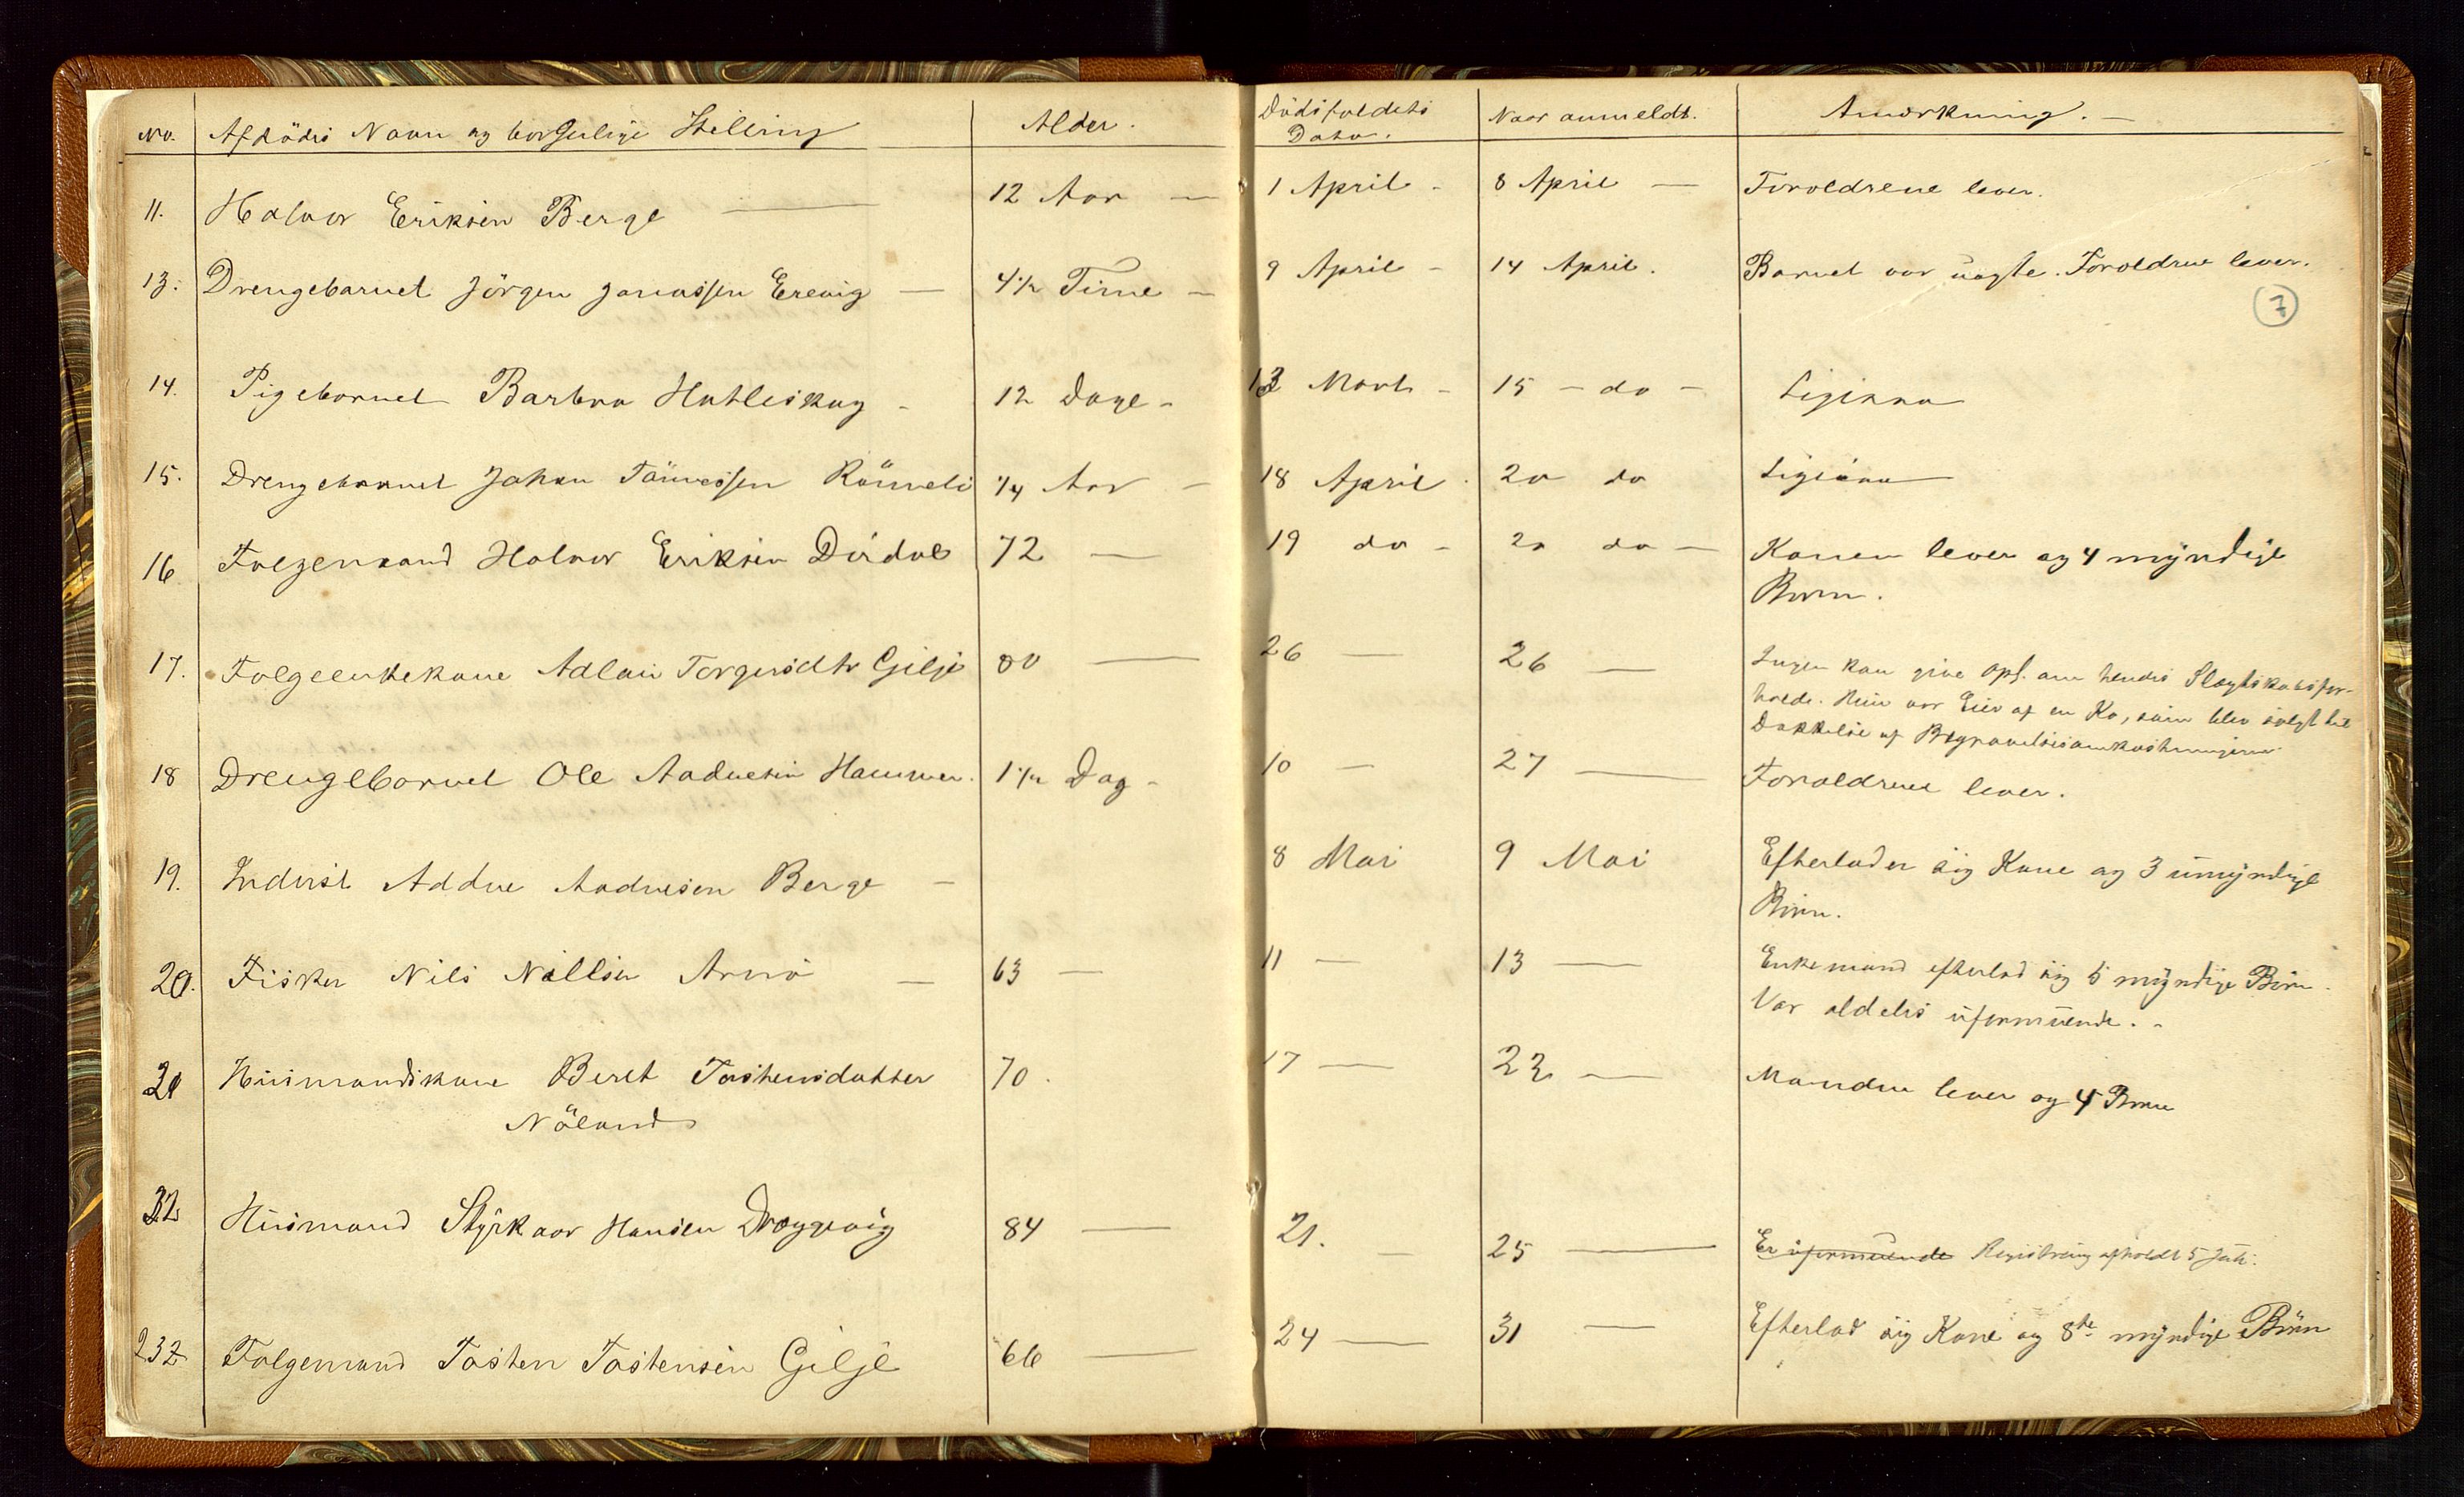 No. Afdödes Navn og borgerlige Stilling Alder. Dödsfaldets Naar anmeldt. Anmærkning. —
Dato.
11. Halvor Eriksen Berge — 12 Aar — 1 April - 8 April — Forældrene lever.
13. Drengebarnet Jörgen Jonassen Erevig — 4½ Time — 9 April - 14 April. Barnet var uægte. Forældrene lever.
7
14. Pigebarnet Barbra Hatleskog - 12 Dage - 13 Marts - 15 - do - Ligesaa
15. Drengebarnet Johan Tönnessen Römeli ¼ Aar - 18 April. 20 do Ligesaa
16 Folgemand Halvor Eriksen Dirdal 72 — 19 do - 20 do — Konen lever og 4 myndige
Börn.
17. Folgeenkekone Adlau Torgersdtr Gilje 80 — 26 — 26 — Ingen kan give Opl. om hendes Slægtskabsfor-
holde. Hun var Eier af en Ko, som blev solgt til
Dækkelse af Begravelsesomkostningerne
18 Drengebarnet Ole Aadnesen Hammer. 1½ Dag - 10 — 27 — Forældrene lever.
19. Inderst Addne Aadnesen Berge — 8 Mai 9 Mai Efterlader sig Kone og 3 umyndige
Börn.
20. Fisker Nils Nillsen Arnö — 63 — 11 — 13 — Enkemand efterlod sig 5 myndige Börn.
Var aldeles uformuende. -
21 Husmandskone Beret Tostensdatter 70. 17 — 22 — Manden lever og 4 Börn
Nöland
22 Husmand Styrkaar Hansen Dragevig 84 — 21. — 25 — Er uformuende Registrering afholdt 5 Juli.
232 Folgemand Tosten Tostensen Gilje 66 — 24 — 31 — Efterlod sig Kone og 8te myndige Börn